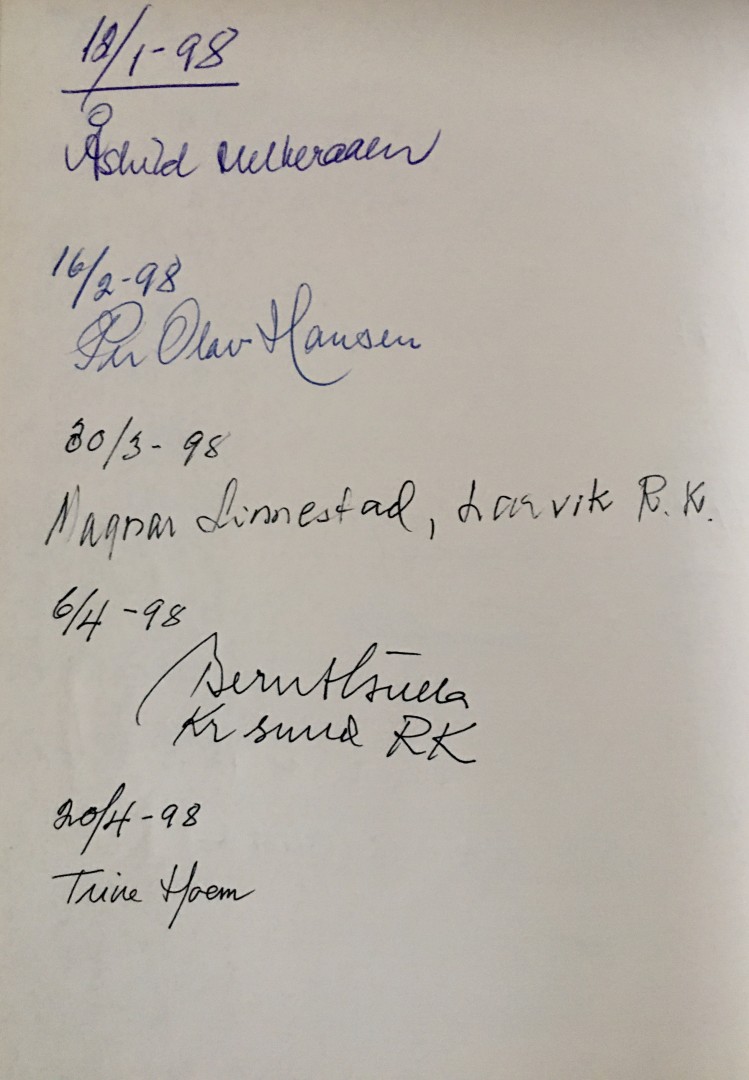 12/1-98
Åshild Melkeraaen
16/2-98
Per Olav Hansen
30/3-98
Magnar Linnestad, Larvik R.K.
6/4-98
Bernt
Kr sund RK
20/4-98
Trine Hoem